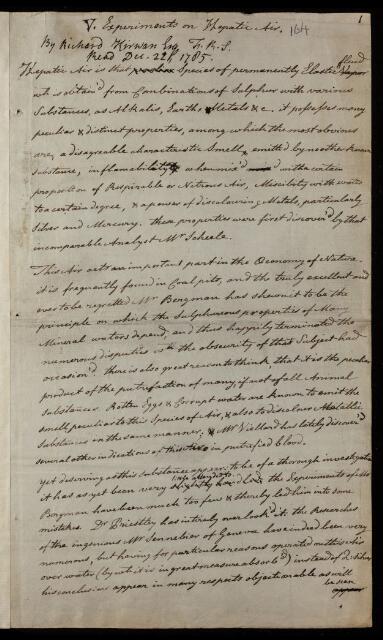 1
V. Experiments on Hepatic Air. 164
By Richard Kirwan Esq. F.R.S.
Read Dec. 22d 1785.
Hepatic Air is that Species of permanently Elastic fluid
wh. is obtain'd from Combinations of Sulphur with various
Substances, as Alkalis, Earths, Metals &c. it possesses many
peculiar & distinct properties, among which the most obvious
are, a disagreable characteristic Smell, emitted by no other known
Substance, inflamability when mix'd with a certain
proportion of Respirable or Nitrous Air, Miscibility with water
to a certain degree, & a power of discolouring Metals, particularly
Silver and Mercury. these properties were first discover'd by that
incomparable Analyst Mr. Scheele.
This Air acts an important part in the Oeconomy of Nature.
it is frequently found in Coal pits, and the truly excellent and
ever to be regretted Mr. Bergman has shewn it to be the
principle on which the Sulphureous properties of Many
Mineral waters depend, and thus happily terminated the
numerous disputes wh. the obscurity of that Subject had
occasion'd. there is also great reason to think, that it is the peculiar
product of the putrefaction of many, if not of all Animal
Substances. Rotten Eggs & Corrupt water are known to emit the
smell peculiar to this Species of Air, & also to discolour Metallic
Substances in the same manner, & Mr. Viellard has lately discover'd
several other indications of this in putrefied blood.
yet deserving as this Substance appears to be of a thorough investigation
it has as yet been very little attended to. the Experiments of Mr.
Bergman have been much too few & thereby led him into some
mistakes. Dr. Priestley has intirely over look'd it. the Researches
of the ingenious Mr. Sennebier of Geneva have indeed been very
numerous, but having for particular reasons operated on this Air
over water (by wh. it is in great measure absorb'd) instead of
his conclusions appear in many respects objectionable as will
be seen